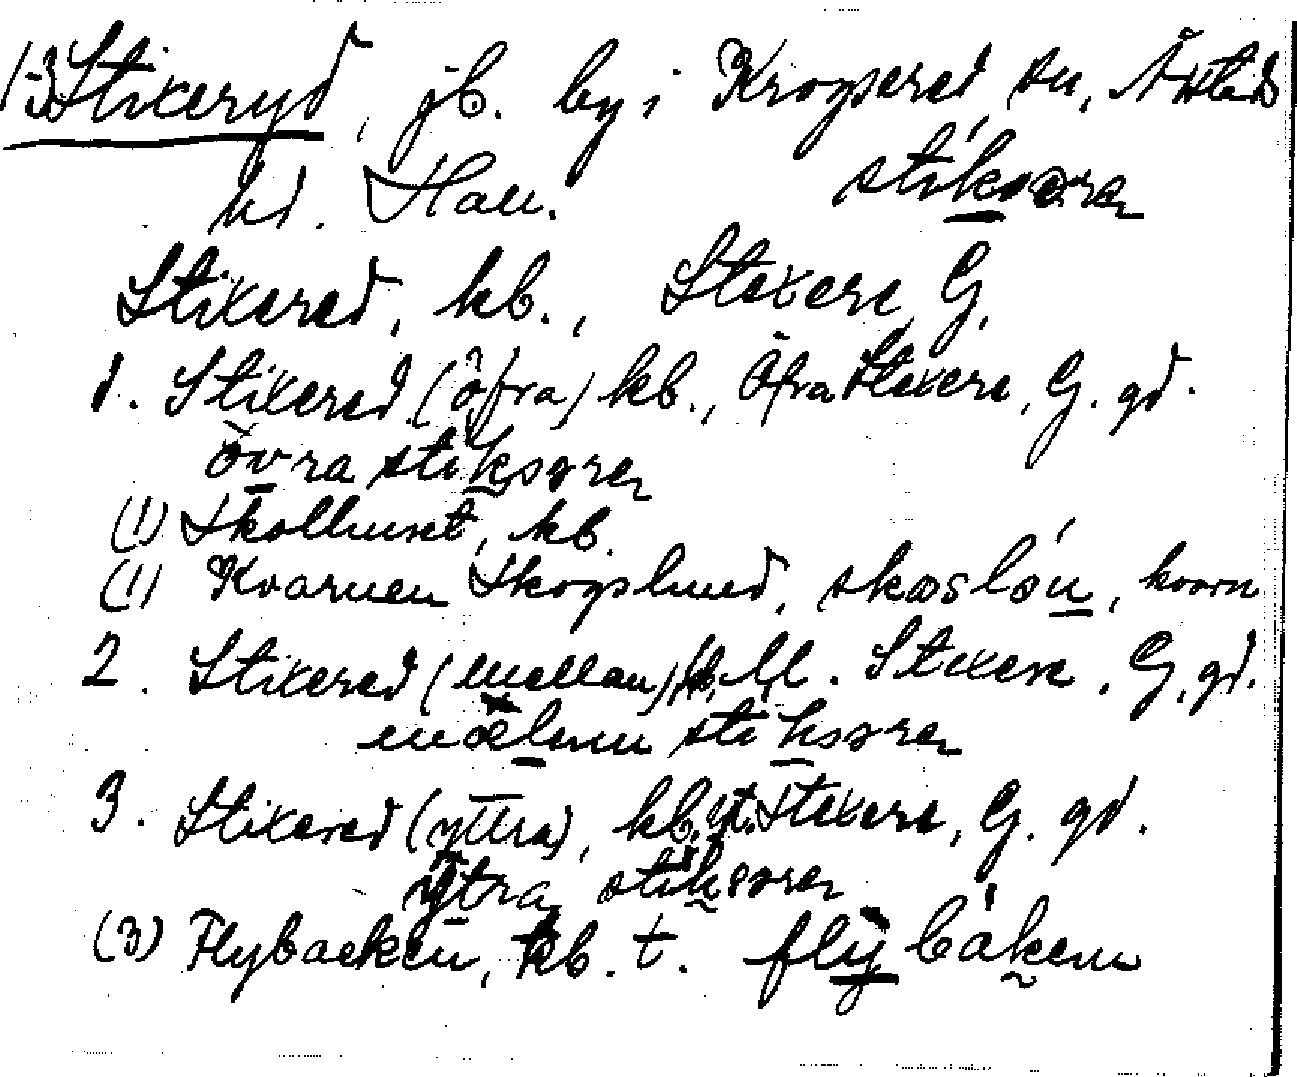 1-3 Stixeryd, jb. by i Krogsered sn, Årstad
hd. Hall. stiksərer
Stixered, kb., Stexere G.
1. Stixered (öfra) kb., Öfra Stexere, G. gd.
övra stiksərer
(1) Skolhuset, kb.
(1) Kvarnen Skogslund, skoslón, kvarn
2. Stixered (mellan) kb, M. Stixere, G. gd.
mæləm stiksərer
3. Stixered (yttra), kb. yt. Stexere, G. gd.
ytra stiksərer
(3) Flybacken, kb. t. flybákem